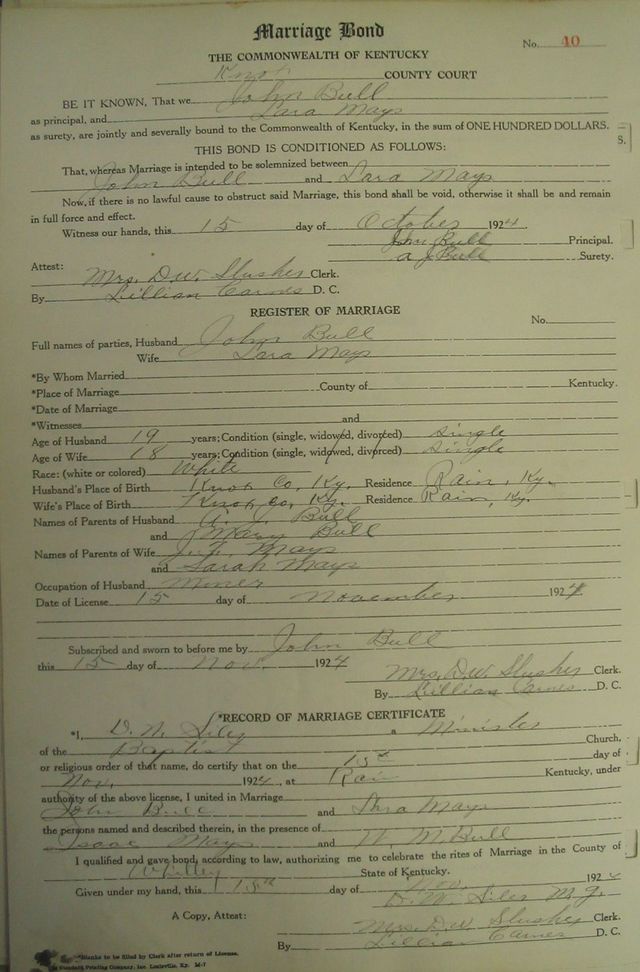 Marriage Bond
No. 40
THE COMMONWEALTH OF KENTUCKY
Knox COUNTY COURT
BE IT KNOWN, That we John Bull
as principal, and Lara Mays
as surety, are jointly and severally bound to the Commonwealth of Kentucky, in the sum of ONE HUNDRED DOLLARS.
THIS BOND IS CONDITIONED AS FOLLOWS:
That, whereas Marriage is intended to be solemnized between
John Bull and Lara Mays
Now, if there is no lawful cause to obstruct said Marriage, this bond shall be void, otherwise it shall be and remain
in full force and effect.
Witness our hands, this 15 day of October 1924
John Bull Principal.
A J Bull Surety.
Attest:
Mrs. D.W. Slusher Clerk.
By Lillian Carnes D. C.
REGISTER OF MARRIAGE
No.
Full names of parties, Husband John Bull
Wife Lara Mays
*By Whom Married
*Place of Marriage County of Kentucky.
*Date of Marriage
*Witnesses and
Age of Husband 19 years; Condition (single, widowed, divorced) single
Age of Wife 18 years; Condition (single, widowed, divorced) single
Race: (white or colored) White
Husband's Place of Birth Knox Co, Ky. Residence Rain, Ky.
Wife's Place of Birth Knox Co, Ky. Residence Rain, Ky.
Names of Parents of Husband A. J. Bull
and Mary Bull
Names of Parents of Wife J. F. Mays
and Sarah Mays
Occupation of Husband Miner
Date of License 15 day of November 1924
Subscribed and sworn to before me by John Bull
this 15 day of Nov. 1924
Mrs. D.W. Slusher Clerk.
By Lillian Carnes D. C.
*RECORD OF MARRIAGE CERTIFICATE
*I, D. W. Siler a Minister
of the Baptist Church,
or religious order of that name, do certify that on the 15th day of
Nov. 1924, at Rain Kentucky, under
authority of the above license, I united in Marriage
John Bull and Lara Mays
the persons named and described therein, in the presence of
Isaac Mays and W. M Bull
I qualified and gave bond, according to law, authorizing me to celebrate the rites of Marriage in the County of
Whitley State of Kentucky.
Given under my hand, this 15th day of 192
D. W. Siler M. G.
A Copy, Attest: Mrs. D.W. Slusher Clerk.
By Lillian Carnes D. C.
*Blanks to be filled by Clerk after return of License.
Standard Printing Company, Inc. Louisville, Ky. M-7